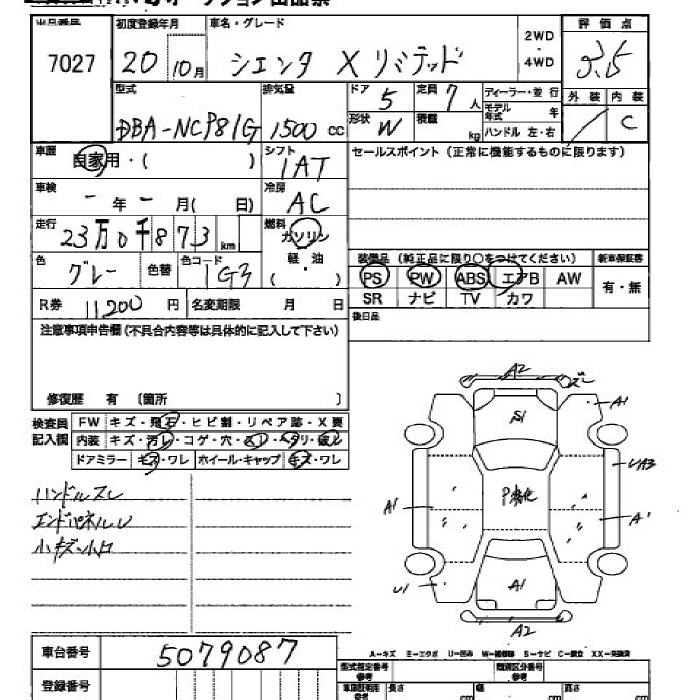 出品番号 初度登録年月 車名・グレード 2WD・4WD 評価点
7027 20 10月 シエンタ Xリミテッド 3.5
型式 排気量 ドア 5 定員 7人 ディーラー・並行 外装 内装
DBA-NCP81G 1500 CC 形状 W 積載 kg モデル年式 年 ハンドル 左・右 C
車歴 自家用・( ) シフト 1AT セールスポイント(正常に機能するものに限ります)
車検 - 年 - 月( 日) 冷房 AC
走行 23万0千873km 燃料 ガソリン
色 グレー 色替 色コード 1G3 軽・油 ( )
装備品(純正品に限り○をつけてください) 新車保証書
PS PW ABS エアB AW 有・無
SR ナビ TV カワ
R券 11200 円 名変期限 月 日 後日品
注意事項申告欄(不具合内容等は具体的に記入して下さい)
修復歴 有 〔箇所 〕
検査員記入欄 FW キズ・飛石・ヒビ割・リペア跡・X要
内装 キズ・汚レ・コゲ・穴・スレ・ヘタリ・破レ
ドアミラー キズ・ワレ ホイール・キャップ キズ・ワレ
ハンドルスレ
エンドパネルU
小キズ・小凹
A2
S1 A1
UA3
A1 P劣化 A1
U1 A1
A2
A-キズ E-エクボ U-凹み W-補修跡 S-サビ C-腐食 XX-交換済
車台番号 5079087
登録番号
型式指定番号 参考 類別区分番号 参考
長さ cm 幅 cm 高さ cm